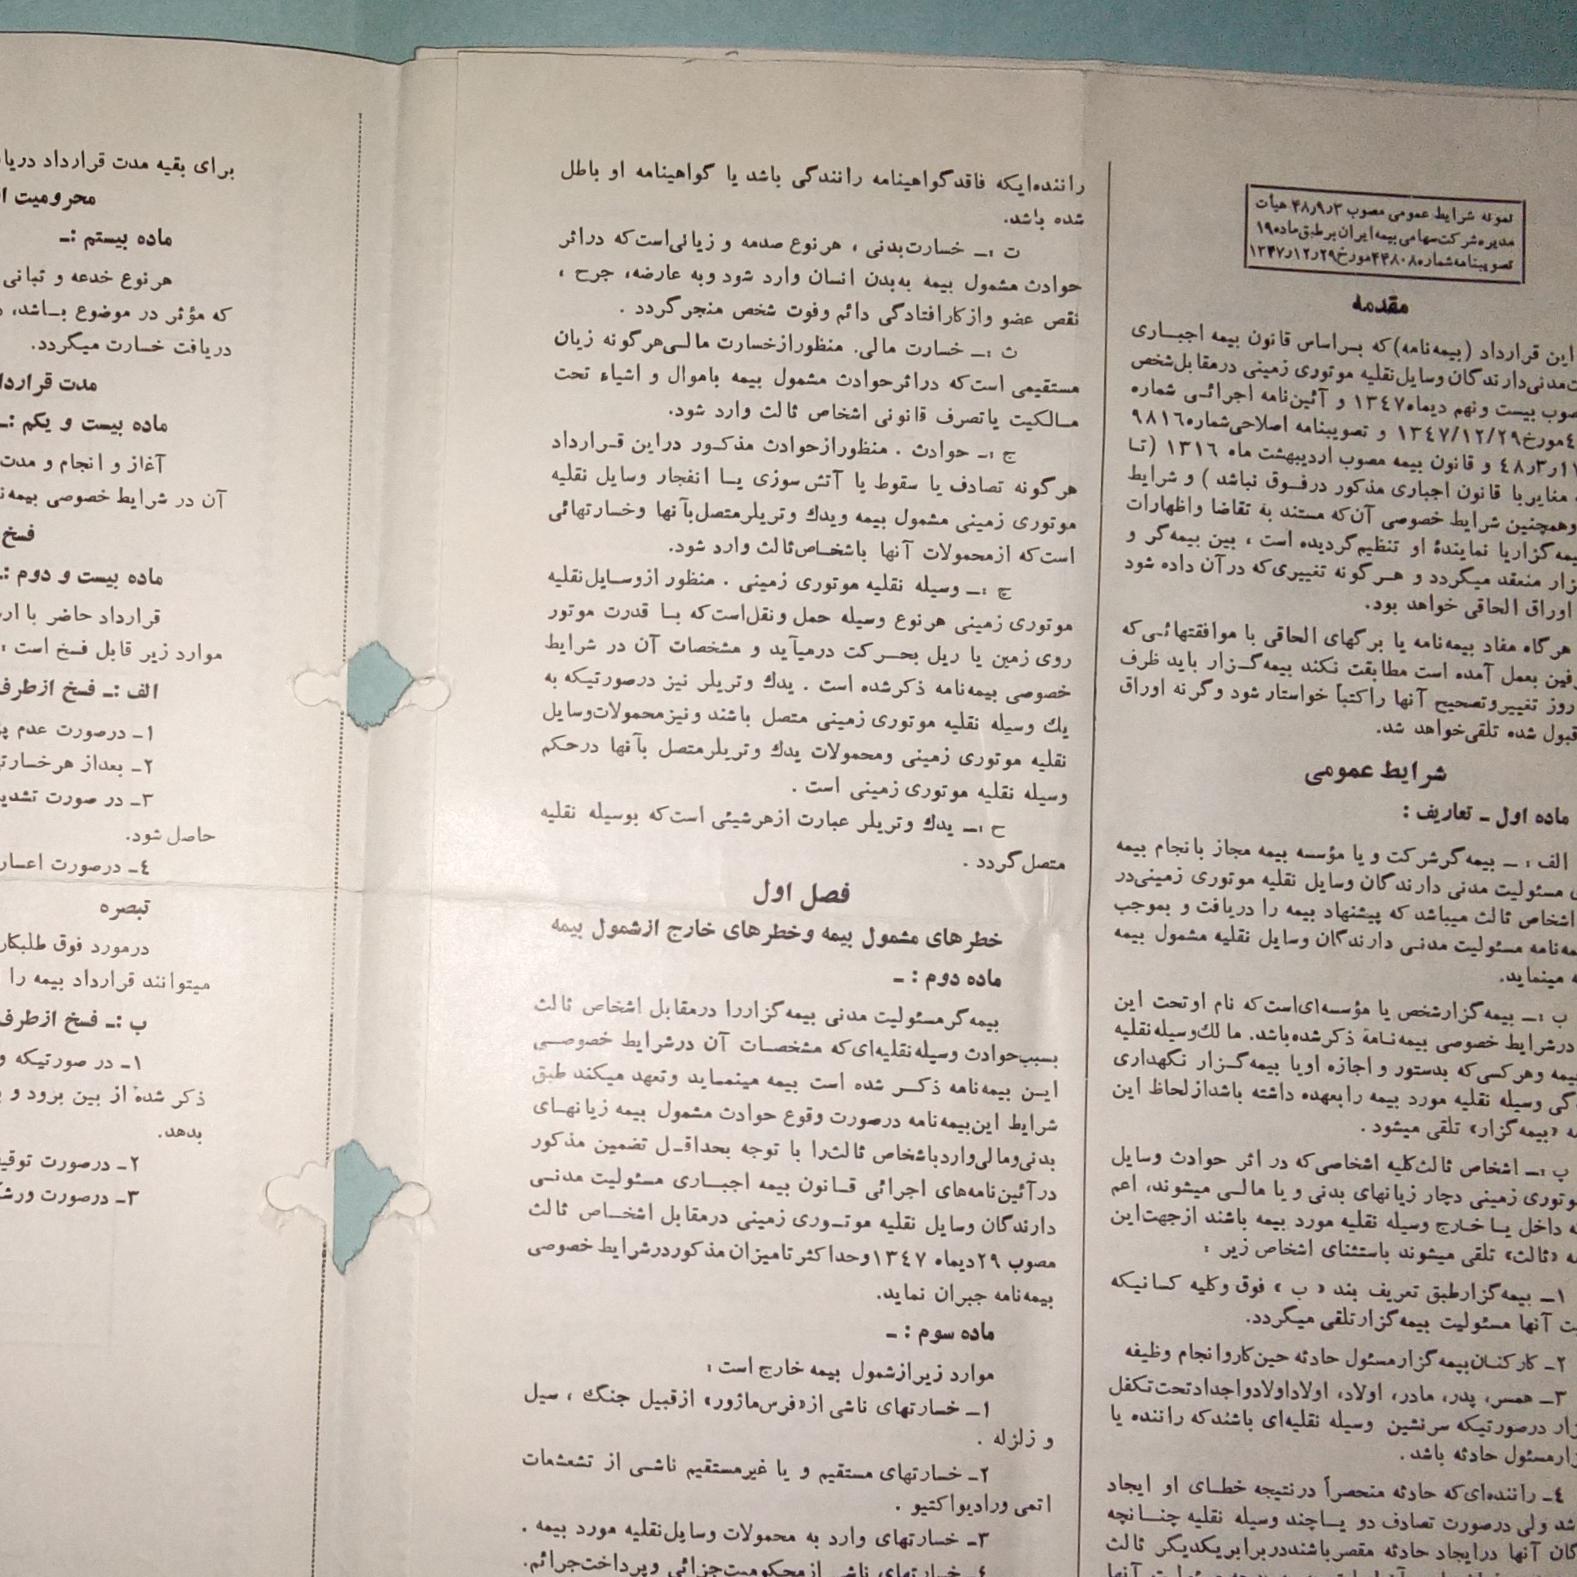 نمونه شرایط عمومی مصوب ۴۸٫۹٫۳ هیأت
مدیره شرکت سهامی بیمه ایران بر طبق ماده ۱۹
تصویبنامه شماره ۴۴۸۰۸ مورخ ۱۳۴۷٫۱۲٫۲۹
مقدمه
این قرارداد (بیمه‌نامه) که بر اساس قانون بیمه اجباری
مدنی دارندگان وسایل نقلیه موتوری زمینی در مقابل شخص
بیست و نهم دیماه ۱۳٤۷ و آئین‌نامه اجرائی شماره
مورخ ۱۳٤۷/۱۲/۲۹ و تصویبنامه اصلاحی شماره ۹۸۱٦
٤۸٫۳٫۱۷ و قانون بیمه مصوب اردیبهشت ماه ۱۳۱٦ (تا
مغایر با قانون اجباری مذکور در فوق نباشد ) و شرایط
وهمچنین شرایط خصوصی آن که مستند به تقاضا واظهارات
یا نمایندهٔ او تنظیم گردیده است ، بین بیمه‌گر و
منعقد میگردد و هر گونه تغییری که در آن داده شود
اوراق الحاقی خواهد بود.
هر گاه مفاد بیمه‌نامه یا برگهای الحاقی با موافقتهائی که
بعمل آمده است مطابقت نکند بیمه گزار باید ظرف
روز تغییر و تصحیح آنها را کتباً خواستار شود و گرنه اوراق
قبول شده تلقی خواهد شد.
شرایط عمومی
ماده اول ـ تعاریف :
الف : ـ بیمه گر شرکت و یا مؤسسه بیمه مجاز بانجام بیمه
مسئولیت مدنی دارندگان وسایل نقلیه موتوری زمینی در
اشخاص ثالث میباشد که پیشنهاد بیمه را دریافت و بموجب
مسئولیت مدنی دارندگان وسایل نقلیه مشمول بیمه
مینماید.
ب :ـ بیمه گزار شخص یا مؤسسه‌ای است که نام او تحت این
در شرایط خصوصی بیمه‌نامه ذکر شده باشد. مالك وسیله نقلیه
وهر کسی که بدستور و اجازه او یا بیمه گزار نگهداری
وسیله نقلیه مورد بیمه را بعهده داشته باشد از لحاظ این
«بیمه گزار» تلقی میشود .
پ :ـ اشخاص ثالث کلیه اشخاصی که در اثر حوادث وسایل
زمینی دچار زیانهای بدنی و یا مالی میشوند، اعم
داخل یا خارج وسیله نقلیه مورد بیمه باشند از جهت این
«ثالث» تلقی میشوند باستثنای اشخاص زیر :
۱ـ بیمه گزار طبق تعریف بند « ب » فوق و کلیه کسانیکه
آنها مسئولیت بیمه گزار تلقی میگردد.
۲ـ کارکنان بیمه گزار مسئول حادثه حین کار و انجام وظیفه
۳ـ همسر، پدر، مادر، اولاد، اولاد اولاد و اجداد تحت تکفل
در صورتیکه سرنشین وسیله نقلیه‌ای باشند که راننده یا
مسئول حادثه باشد .
٤ـ راننده‌ای که حادثه منحصراً در نتیجه خطای او ایجاد
ولی در صورت تصادف دو یا چند وسیله نقلیه چنانچه
آنها در ایجاد حادثه مقصر باشند در برابر یکدیگر ثالث
راننده‌ایکه فاقد گواهینامه رانندگی باشد یا گواهینامه او باطل
شده باشد.
ت :ـ خسارت بدنی ، هر نوع صدمه و زیانی است که در اثر
حوادث مشمول بیمه به‌بدن انسان وارد شود وبه عارضه، جرح ،
نقص عضو و از کارافتادگی دائم و فوت شخص منجر گردد .
ث :ـ خسارت مالی. منظور از خسارت مالی هر گونه زیان
مستقیمی است که در اثر حوادث مشمول بیمه باموال و اشیاء تحت
مالکیت یا تصرف قانونی اشخاص ثالث وارد شود.
ج :ـ حوادث . منظور از حوادث مذکور در این قرارداد
هر گونه تصادف یا سقوط یا آتش سوزی یا انفجار وسایل نقلیه
موتوری زمینی مشمول بیمه ویدك و تریلر متصل بآنها و خسارتهائی
است که از محمولات آنها باشخاص ثالث وارد شود.
چ :ـ وسیله نقلیه موتوری زمینی . منظور از وسایل نقلیه
موتوری زمینی هر نوع وسیله حمل ونقل است که با قدرت موتور
روی زمین یا ریل بحرکت درمیآید و مشخصات آن در شرایط
خصوصی بیمه‌نامه ذکر شده است . یدك و تریلر نیز در صورتیکه به
یك وسیله نقلیه موتوری زمینی متصل باشند و نیز محمولات وسایل
نقلیه موتوری زمینی و محمولات یدك و تریلر متصل بآنها در حکم
وسیله نقلیه موتوری زمینی است .
ح :ـ یدك و تریلر عبارت از هر شیئی است که بوسیله نقلیه
متصل گردد .
فصل اول
خطرهای مشمول بیمه وخطرهای خارج ازشمول بیمه
ماده دوم : ـ
بیمه گر مسئولیت مدنی بیمه گزار را در مقابل اشخاص ثالث
بسبب حوادث وسیله نقلیه‌ای که مشخصات آن در شرایط خصوصی
این بیمه‌نامه ذکر شده است بیمه مینماید و تعهد میکند طبق
شرایط این بیمه‌نامه در صورت وقوع حوادث مشمول بیمه زیانهای
بدنی و مالی وارد باشخاص ثالث را با توجه بحداقل تضمین مذکور
در آئین‌نامه‌های اجرائی قانون بیمه اجباری مسئولیت مدنی
دارندگان وسایل نقلیه موتوری زمینی در مقابل اشخاص ثالث
مصوب ۲۹ دیماه ۱۳٤۷ وحداکثر تا میزان مذکور در شرایط خصوصی
بیمه‌نامه جبران نماید.
ماده سوم : ـ
موارد زیر از شمول بیمه خارج است :
۱ـ خسارتهای ناشی از «فرس ماژور» ازقبیل جنگ ، سیل
و زلزله .
۲ـ خسارتهای مستقیم و یا غیر مستقیم ناشی از تشعشعات
اتمی ورادیواکتیو .
۳ـ خسارتهای وارد به محمولات وسایل نقلیه مورد بیمه .
٤ـ خسارتهای ناشی از محکومیت جزائی و پرداخت جرائم.
برای بقیه مدت قرارداد
محرومیت
ماده بیستم :ـ
هر نوع خدعه و تبانی
که مؤثر در موضوع باشد،
دریافت خسارت میگردد.
مدت قرارداد
ماده بیست و یکم :ـ
آغاز و انجام و مدت
آن در شرایط خصوصی
فسخ
ماده بیست و دوم :ـ
قرارداد حاضر با
موارد زیر قابل فسخ است :
الف :ـ فسخ از طرف
۱ـ درصورت عدم
۲ـ بعداز هر
۳ـ در صورت
حاصل شود.
٤ـ درصورت اعسار
تبصره
درمورد فوق
میتوانند قرارداد بیمه را
ب :ـ فسخ از طرف
۱ـ در صورتیکه
ذکر شده از بین برود و
بدهد.
۲ـ درصورت
۳ـ درصورت